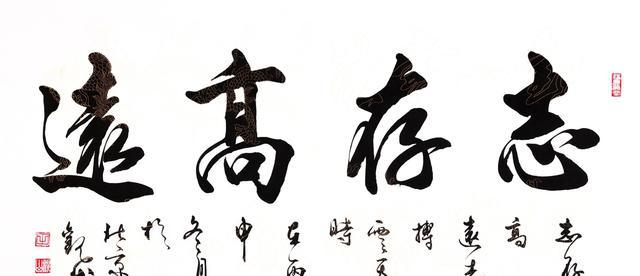 志存高遠
志存
高
遠
搏
雲天
時
在丙
申
冬月
於
北京